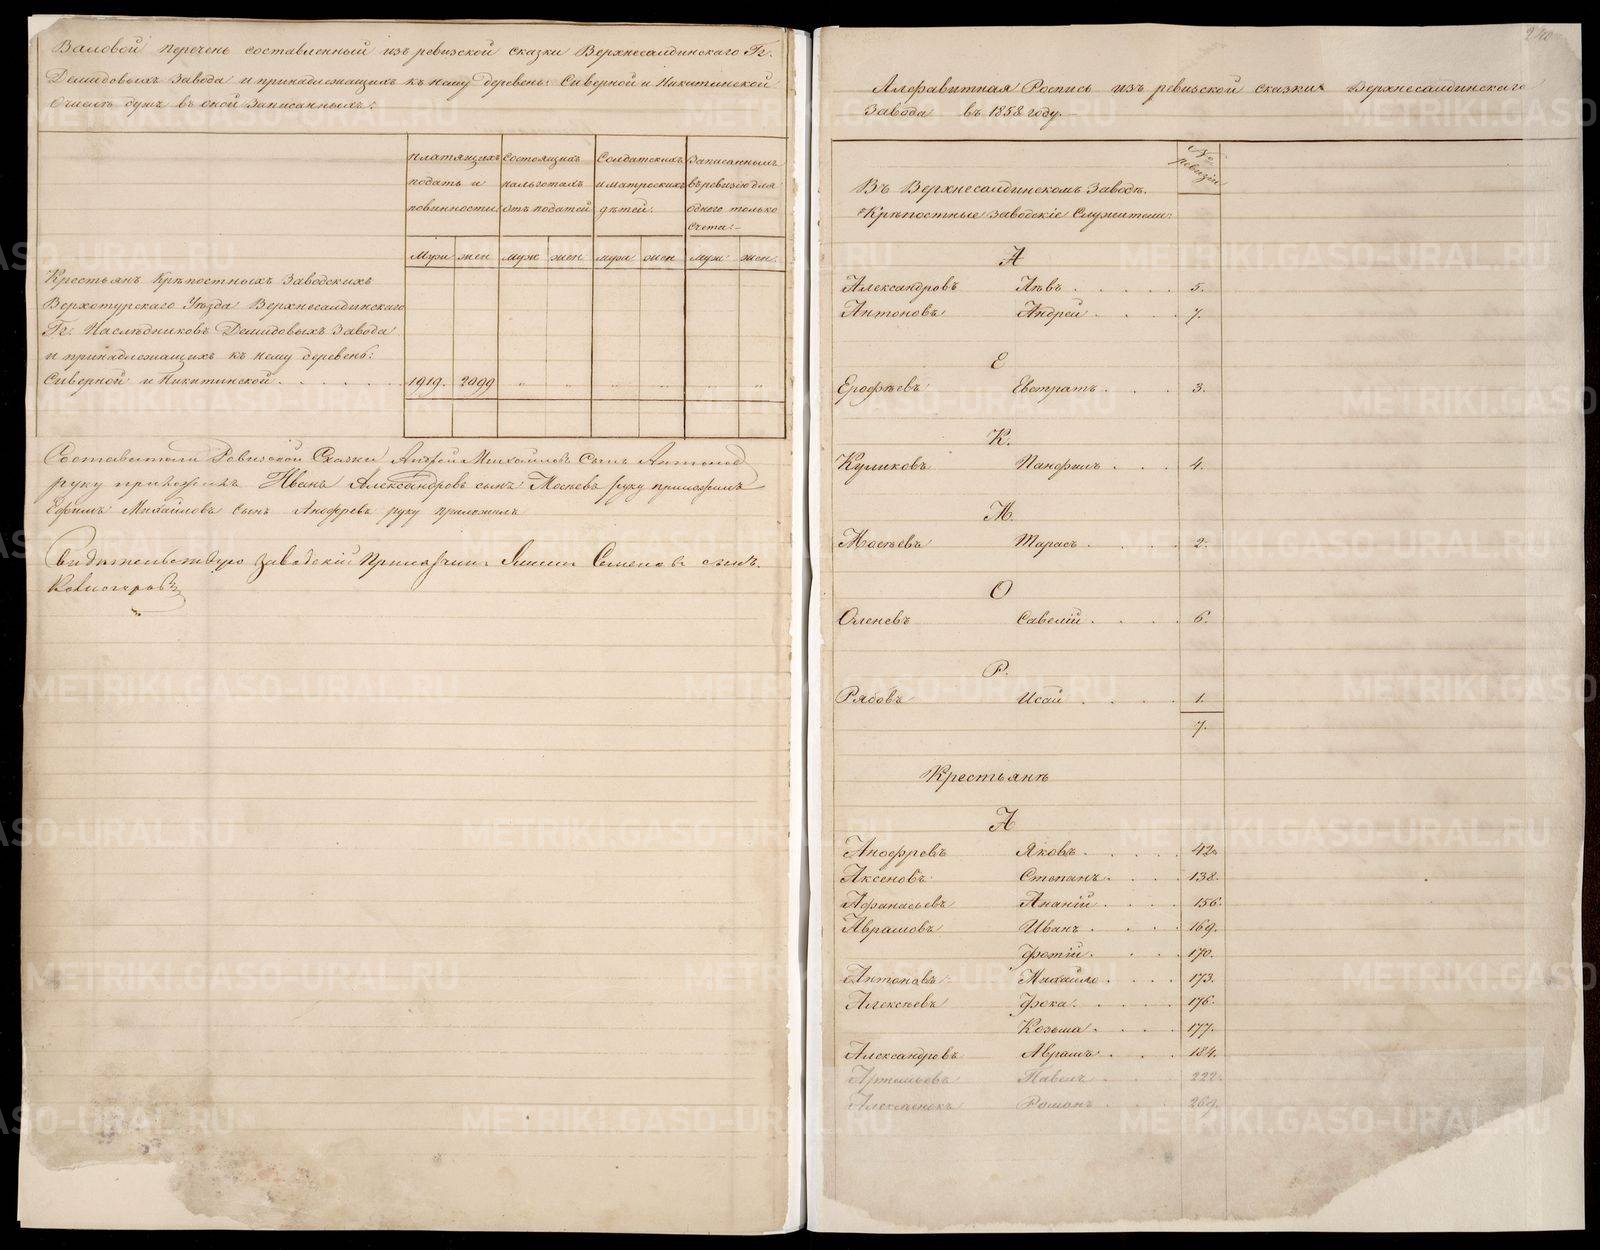 Валовой перечень составленный изъ ревизской сказки Верхнесалдинскаго Гг.
Демидовыхъ завода и принадлежащихъ къ нему деревень: Сиверной и Никитинской
о числѣ душъ въ оной записанныхъ:
платящихъ состоящихъ Солдатскихъ Записанныхъ
подать и на льготахъ и матроскихъ въ ревизію для
повинности отъ податей дѣтей. одного только
счета:-
Муж жен муж жен муж жен муж жен.
Крестьянъ Крѣпостныхъ Заводскихъ
Верхотурскаго Уѣзда Верхнесалдинскаго
Гг: Наслѣдниковъ Демидовыхъ Завода
и принадлежащихъ къ нему деревень:
Сиверной и Никитинской . . . . . . 1919. 2099 " " " " " "
Составители Ревизской Сказки Андрей Михайловъ Сынъ Антонов
руку приложилъ Иванъ Александровъ сынъ Мосѣевъ руку приложилъ
Ефимъ Михайловъ сынъ Анофревъ руку приложилъ
Свидѣтельствую заводскій Семеновъ сынъ
240
Алфавитная Роспись изъ ревизской сказки Верхнесалдинскаго
Завода въ 1858 году.
№ ревизіи
Въ Верхнесалдинскомъ Заводѣ.
Крѣпостные заводскіе Служители:
А
Александровъ Лѣвъ . . . . . 5.
Антоновъ Андрей . . . . 7.
Е
Ерофѣевъ Евстратъ . . . 3.
К.
Куликовъ Панфилъ . . . 4.
М.
Мосѣевъ Тарасъ . . . . 2.
О
Оленевъ Савелій . . . . 6.
Р.
Рябовъ Исай . . . . 1.
7.
Крестьянъ
А
Анофревъ Яковъ . . . . . 42.
Аксеновъ Степанъ . . . . 138.
Афанасьевъ Ананій . . . . 156.
Аврамовъ Иванъ . . . . 169.
Фотій . . . . 170.
Антоновъ Михайло . . . . 173.
Алексѣевъ Фока . . . . . 176.
Козьма . . . . 177.
Александровъ Аврамъ . . . . 184.
Артемьевъ Павелъ . . . 222.
Романъ . . . 269.
METRIKI.GASO-URAL.RU